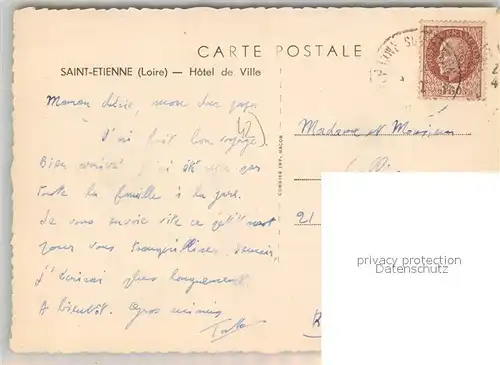 CARTE POSTALE
SAINT-ETIENNE (Loire) — Hôtel de Ville
Maman chérie, mon cher papa
J'ai fait bon voyage
Bien arrivé j'ai été reçu par
toute la famille à la gare.
Je vous envoie vite ce petit mot
pour vous tranquilliser. Demain,
j'écrirai plus longuement.
A bientôt. Gros mimis
Madame et Monsieur
21
COMBIER IMP. MACON
1F50
privacy protection
Datenschutz